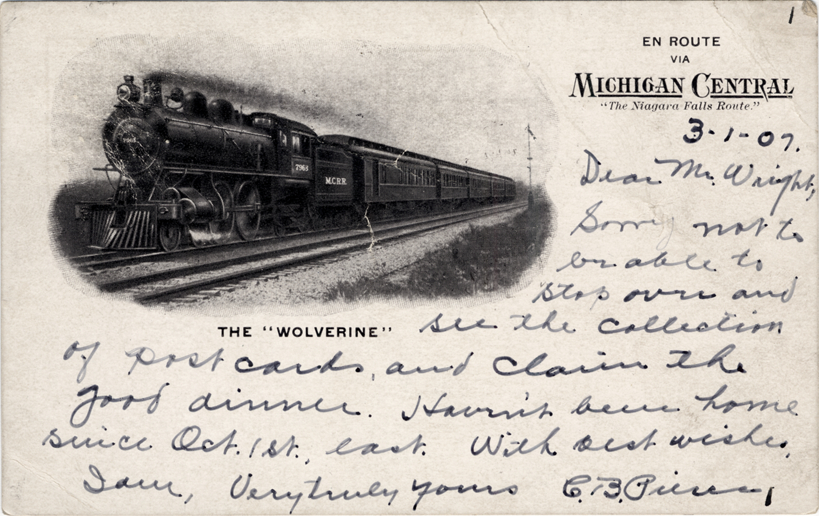 1
EN ROUTE
VIA
MICHIGAN CENTRAL
"The Niagara Falls Route."
3-1-07.
Dear Mr. Wright,
Sorry not to
be able to
stop over and
7963
M.C.R.R.
THE "WOLVERINE"
see the collection
of post cards, and claim the
good dinner. Haven't been home
since Oct. 1st, last. With best wishes,
I am, Very truly yours C. B. Pierce,